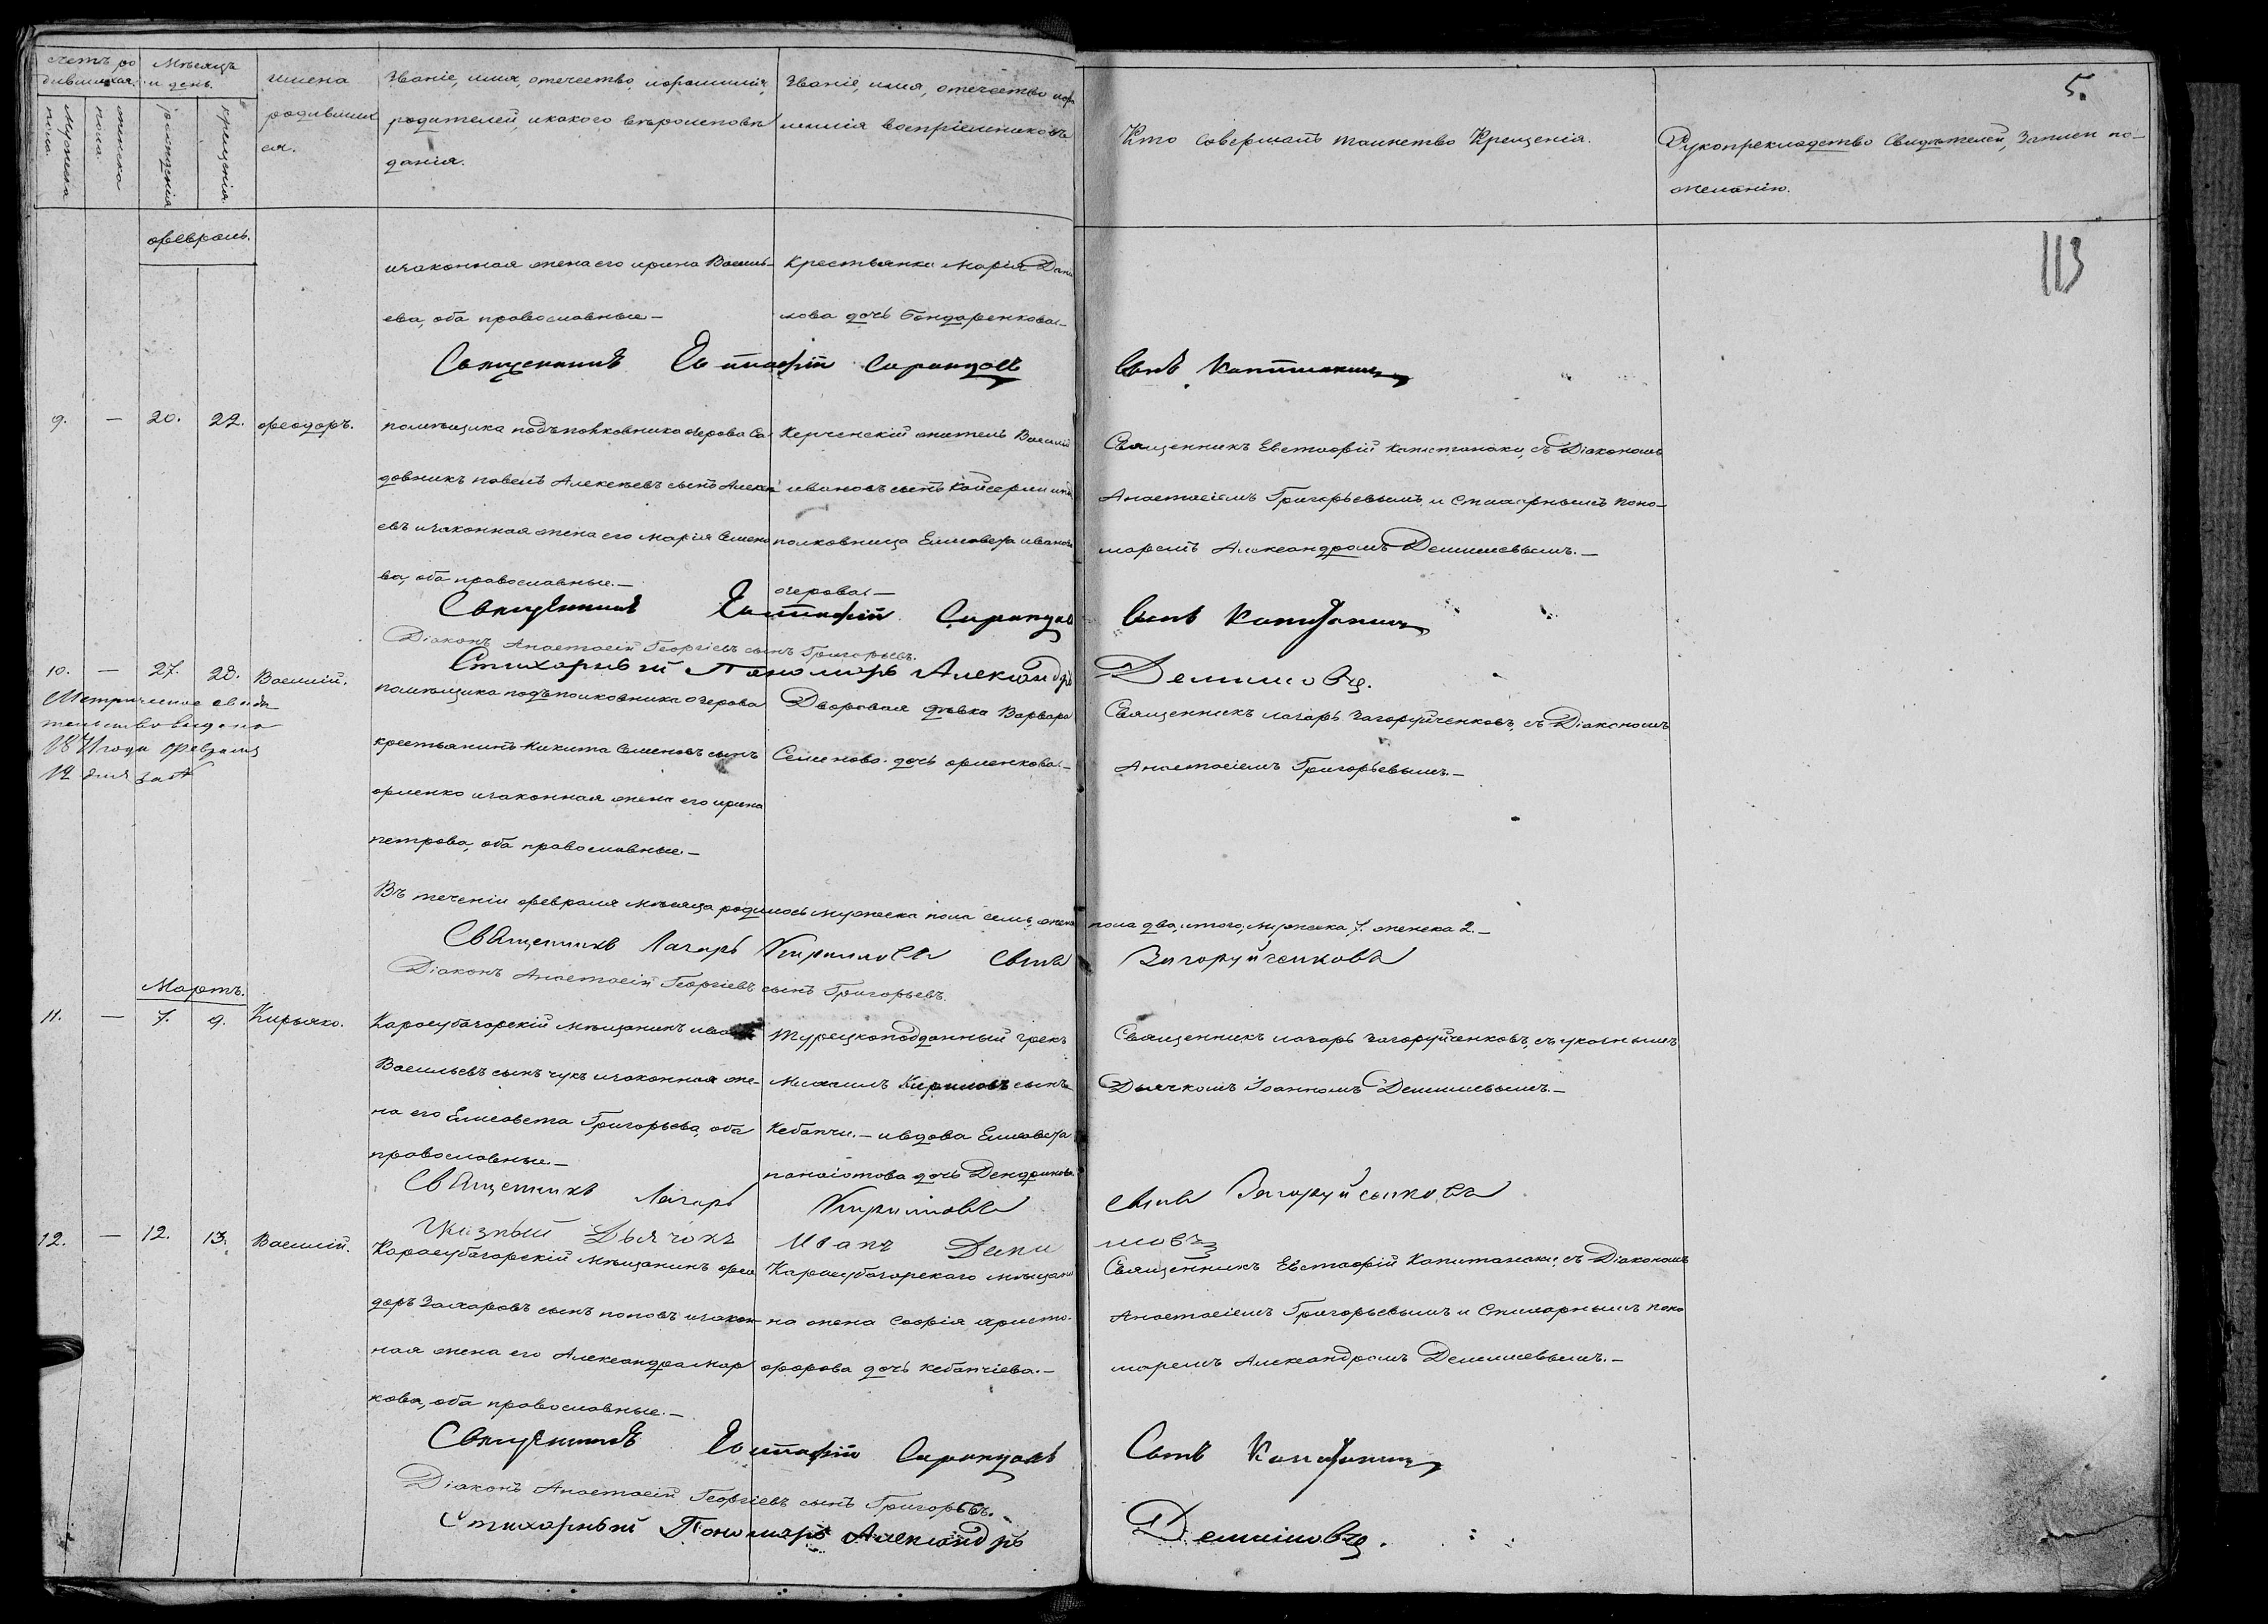 счетъ ро
дившихся.
Мѣсяцъ
и день.
мужеска
пола.
женска
пола.
рожденія
крещенія.
имена
родивших
ся.
Званіе, имя, отечество, и фамилія,
родителей, и какого вѣроисповѣ
данія.
Званіе, имя, отечество и фа
милія воспріемниковъ.
Кто совершалъ таинство Крещенія.
Рукоприкладство Свидѣтелей, Записи по-
желанію.
5.
113
Февраль.
и законная жена его ирина Василь-
ева, оба православные.—
Крестьянка Марія Дани
лова дочь Бондаренкова.—
Священникъ Евстафій Спиридоновъ
Сынъ Капитанаки
9. — 20. 22. Феодоръ.
помѣщика подъполковника Озерова Са
довникъ павелъ Алексѣевъ сынъ Алексѣ
евъ и законная жена его Марія Семено
ва, оба православные.—
Керченскій житель Василій
ивановъ сынъ
полковница Елисавета иванова
Озерова.—
Священникъ Евстафій Капитанаки, съ Діакономъ
Анастасіемъ Григорьевымъ, и Стихарнымъ поно-
маремъ Александромъ Демишевымъ.—
Священникъ Евстафій
Сынъ Капитанаки
Діаконъ Анастасій Георгіевъ сынъ Григорьевъ.
Стихарный Пономарь Александръ
Демишовъ.
10. — 27. 28. Василій.
Метрическое свидѣ
тельство выдано
1871 года Февраля
12 дня за №
помѣщика подъполковника Озерова
крестьянинъ Никита Семеновъ сынъ
орленко и законная жена его ирина
петрова, оба православные.—
Дворовая дѣвка Варвара
Семенова дочь орленкова.—
Священникъ лазарь Загоруйченковъ, съ Діакономъ
Анастасіемъ Григорьевымъ.—
Въ теченіи февраля мѣсяца родилось мужеска пола семь, женска
пола два, итого, мужеска 7. женска 2.—
Священникъ Лазарь Кирилловъ сынъ
Загоруйченковъ
Діаконъ Анастасій Георгіевъ сынъ Григорьевъ.
Мартъ.
11. — 7. 9. Кирьяко.
Карасубазарскій мѣщанинъ иванъ
Васильевъ сынъ чукъ и законная же-
на его Елисавета Григорьева, оба
православные.—
Турецкоподданный грекъ
Михаилъ Кириловъ сынъ
Кебапчи.— и вдова Елисавета
панаіотова дочь Дендринова
Священникъ лазарь Загоруйченковъ, съ указнымъ
Дьячкомъ Іоанномъ Демишевымъ.—
Священникъ Лазарь Кирилловъ
сынъ Загоруйченковъ
Указный Дьячокъ Иванъ Деми
шовъ
12. — 12. 13. Василій.
Карасубазарскій мѣщанинъ фео
доръ Захаровъ сынъ поповъ и закон-
ная жена его Александра Мар
кова, оба православные.—
Карасубазарскаго мѣщани
на жена Софія христо-
форова дочь Кебапчіева.—
Священникъ Евстафій Капитанаки, съ Діакономъ
Анастасіемъ Григорьевымъ и Стихарнымъ поно
маремъ Александромъ Демишевымъ.—
Священникъ Евстафій Спиридоновъ
Сынъ Капитанаки
Діаконъ Анастасій Георгіевъ сынъ Григорьевъ.
Стихарный Пономарь Александръ
Демишовъ.